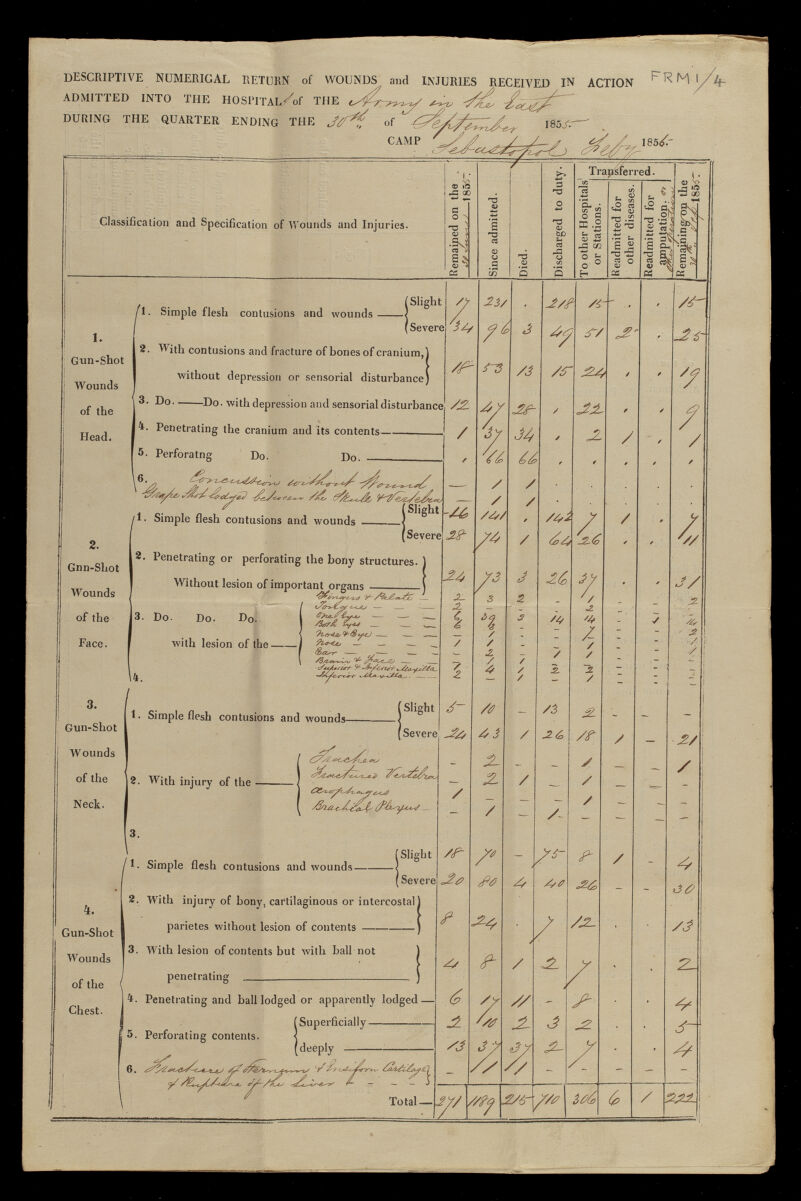 DESCRIPTIVE NUMERIGAL RETURN of WOUNDS and INJURIES RECEIVED IN ACTION FRM1/4
ADMITTED INTO THE HOSPITAL of THE Army in the East
DURING THE QUARTER ENDING THE 30th of September 1855.
CAMP Sebastopol Feby 1856.
Classification and Specification of Wounds and Injuries.
Remained on the 1855.
Since admitted.
Died.
Discharged to duty.
Transferred.
To other Hospitals or Stations.
Readmitted for other diseases.
Readmitted for amputation.
Remaining on the 1855.
1. Gun-Shot Wounds of the Head.
1. Simple flesh contusions and wounds
Slight 17 231 . 218 15 . . 15
Severe 34 96 3 49 51 2 . 25
2. With contusions and fracture of bones of cranium, without depression or sensorial disturbance 18 53 13 15 24 , , 19
3. Do. Do. with depression and sensorial disturbance 12 47 28 , 22 , , 9
4. Penetrating the cranium and its contents 1 37 34 , 2 1 , 1
5. Perforatng Do. Do. , 66 66 , , , , ,
6. Concussion without Wound — 1 1 . . . . .
Grape Shot lodged between the Skull & Vertebra — 1 1 . . . . .
2. Gnn-Shot Wounds of the Face.
1. Simple flesh contusions and wounds
Slight 16 141 , 142 7 1 . 7
Severe 28 74 1 64 26 , , 11
2. Penetrating or perforating the bony structures.
Without lesion of important organs 24 73 3 26 37 . . 31
3. Do. Do. Do. with lesion of the
Palate 2 3 2 - 1 - - 2
Tongue 2 - - - 2 - - -
One Eye
Both Eyes
Nose & Eye
Nose
Ear
Brain & Face
Superior & Inferior Maxilla 7 4 1 2 2
Inferior Maxilla 2 - 1 - 1
4.
3. Gun-Shot Wounds of the Neck.
1. Simple flesh contusions and wounds
Slight 5 10 - 13 2 - - -
Severe 24 43 1 26 18 1 - 21
2. With injury of the
Trachea - 2 - - 1 - - 1
Fractured Vertebra - 2 1 - 1 - - -
Œsophagus 1 - - - 1 - - -
Brachial Plexus - 1 - 1 - - - -
3.
4. Gun-Shot Wounds of the Chest.
1. Simple flesh contusions and wounds
Slight 18 70 - 75 8 1 - 4
Severe 20 80 4 40 26 - - 30
2. With injury of bony, cartilaginous or intercostal parietes without lesion of contents 8 24 . 7 12 . . 13
3. With lesion of contents but with ball not penetrating 4 8 1 2 7 . . 2
4. Penetrating and ball lodged or apparently lodged 6 17 11 - 8 . . 4
5. Perforating contents.
Superficially 2 10 2 3 2 . . 5
deeply 13 37 37 2 7 . . 4
6. Fractures of Sternum & Ensiform Cartilage & Rupture of the Liver - 11 11 - - - - -
Total 271 1189 215 710 306 6 1 222